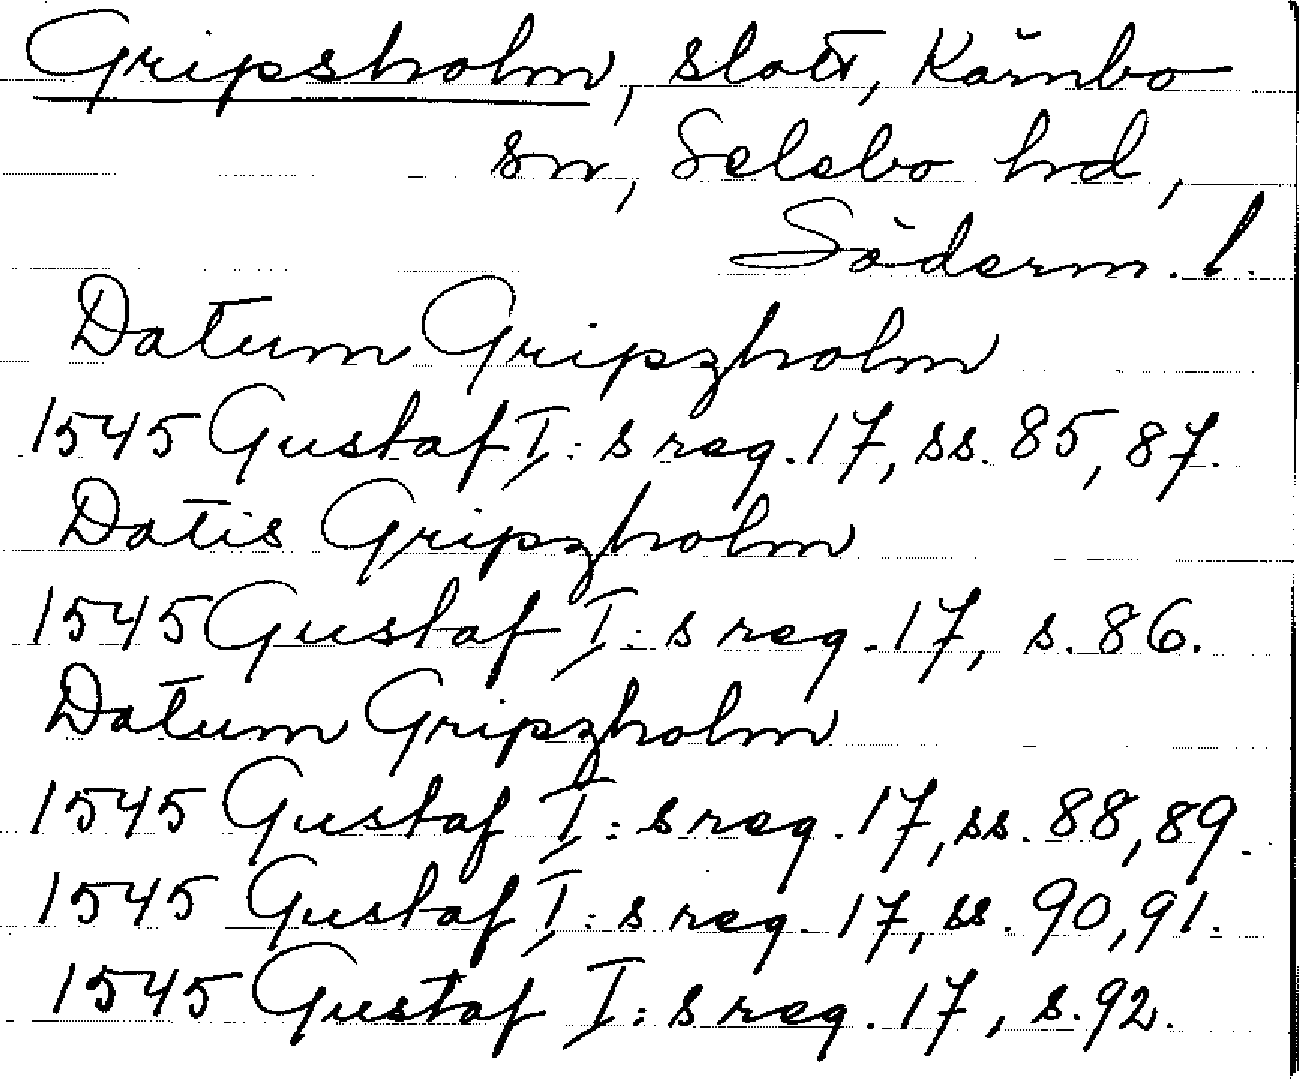 Gripsholm, slott, Kärnbo
sn, Selebo hrd,
Söderm. l.
Datum Gripzholm
1545 Gustaf I:s reg. 17, ss. 85, 87.
Datis Gripzholm
1545 Gustaf I:s reg. 17, s. 86.
Datum Gripzholm
1545 Gustaf I:s reg. 17, ss. 88, 89.
1545 Gustaf I:s reg. 17, ss. 90, 91.
1545 Gustaf I:s reg. 17, s. 92.